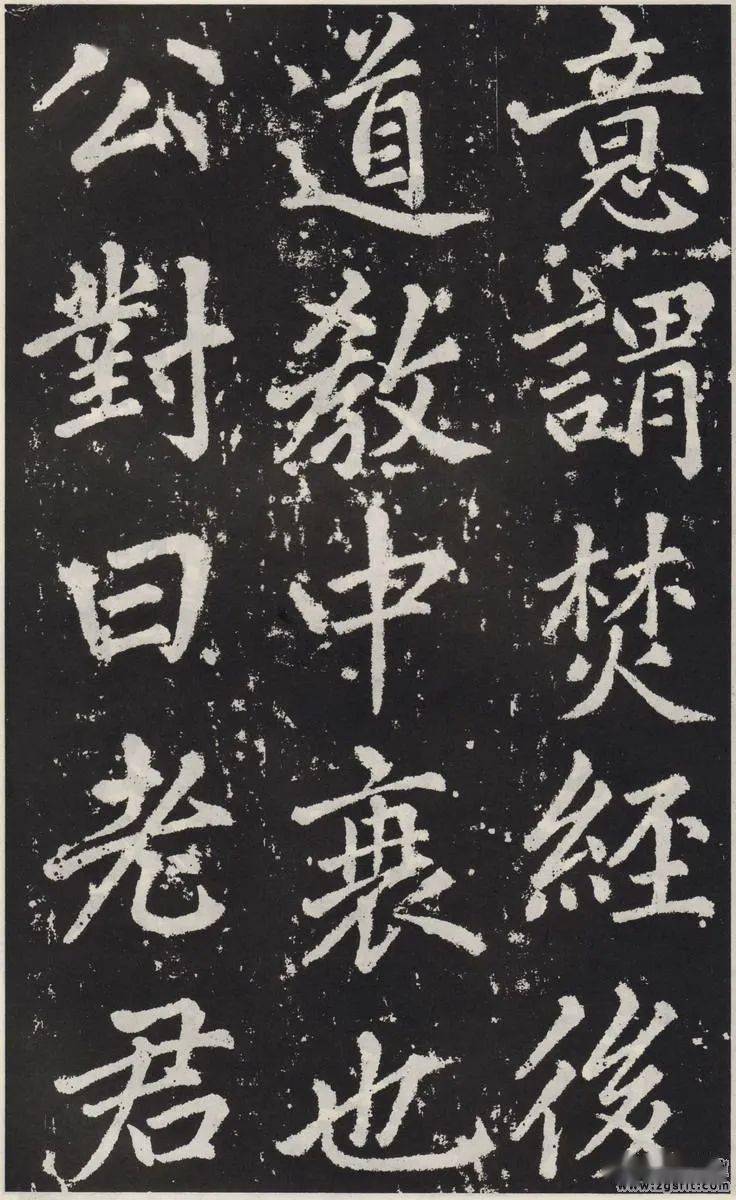 意謂焚經後
道教中衰也
公對曰老君
www.zgsflt.com